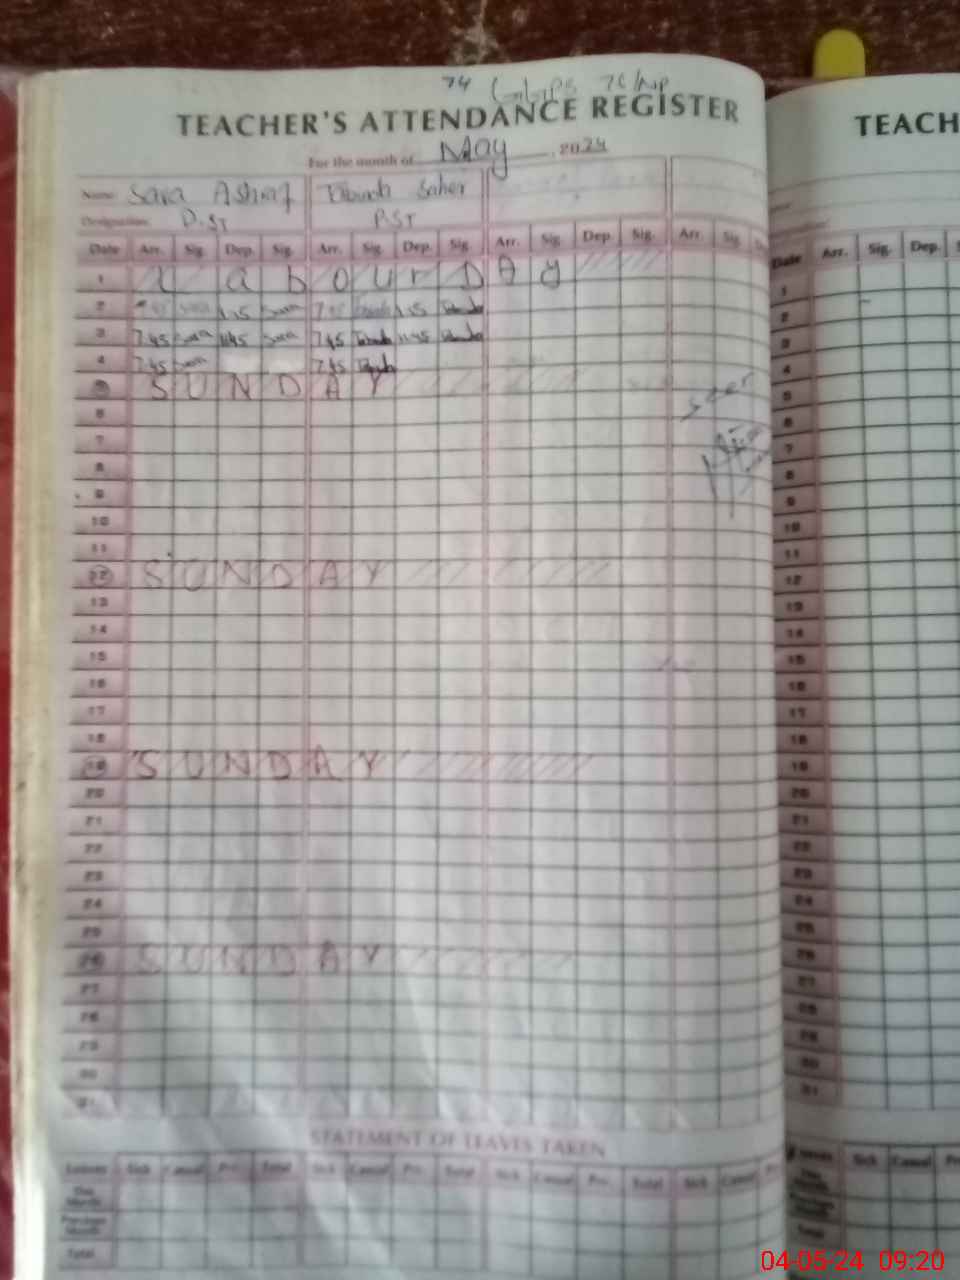 74 GGPS 7C/NP
TEACHER'S ATTENDANCE REGISTER
For the month of May, 2024
Name: Sara Ashraf Saher
Designation: P.ST P.ST
Date Arr. Sig. Dep. Sig. Arr. Sig. Dep. Sig. Arr. Sig. Dep. Sig. Arr. Sig.
1 L a b o u r D a y
2 Sara 1.15 Sara 1.15
3 7.45 Sara 11.45 Sara 7.45 11.45
4 7.45 Sara 7.45
5 S U N D A Y
6
7
8
9
10
11
12 S U N D A Y
13
14
15
16
17
18
19 S U N D A Y
20
21
22
23
24
25
26 S U N D A Y
27
28
29
30
31
seen
STATEMENT OF LEAVES TAKEN
Leaves Sick Casual Prv. Total Sick Casual Prv. Total Sick Casual Prv. Total Sick Casual
This Month
Previous Month
Total
TEACH
Date Arr. Sig. Dep.
1
2
3
4
5
6
7
8
9
10
11
12
13
14
15
16
17
18
19
20
21
22
23
24
25
26
27
28
29
30
31
Leaves Sick Casual
This Month
Previous Month
Total
04-05-24 09:20